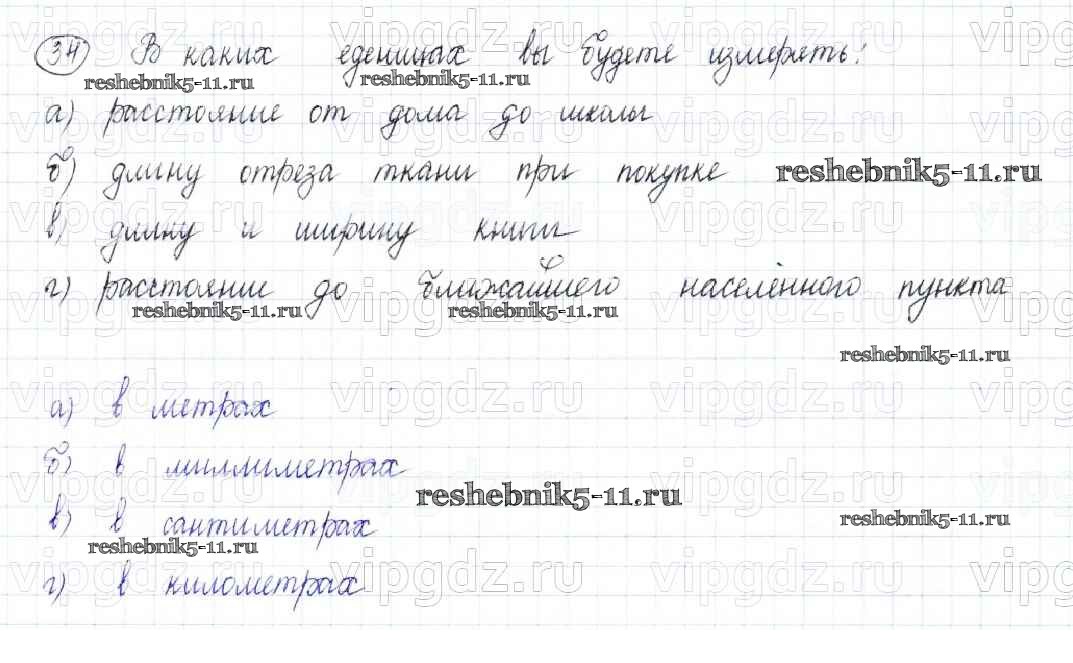 34 В каких еденицах вы будете измерять:
reshebnik5-11.ru reshebnik5-11.ru
а) расстояние от дома до школы
б) длину отреза ткани при покупке reshebnik5-11.ru
в) длину и ширину книги
г) расстояние до ближайшего населённого пункта
reshebnik5-11.ru reshebnik5-11.ru
reshebnik5-11.ru
а) в метрах
б) в миллиметрах
reshebnik5-11.ru
в) в сантиметрах reshebnik5-11.ru
reshebnik5-11.ru
г) в километрах
vipgdz.ru